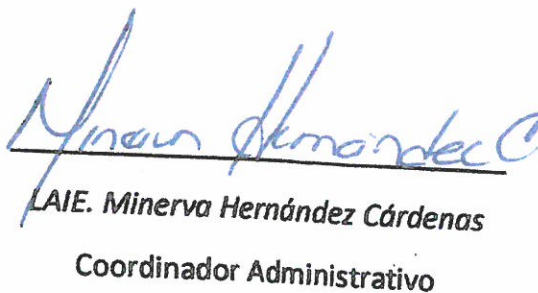 Minerva Hernández C
LAIE. Minerva Hernández Cárdenas
Coordinador Administrativo